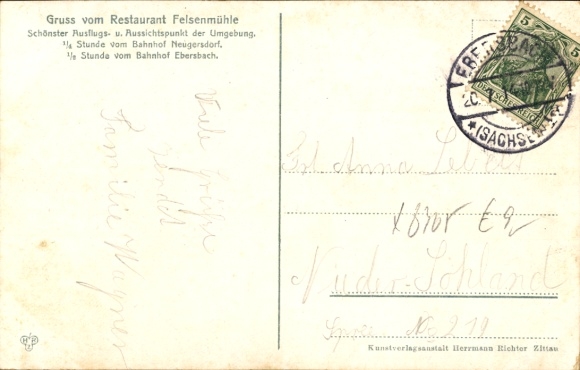 Gruss vom Restaurant Felsenmühle
Schönster Ausflugs- u. Aussichtspunkt der Umgebung.
¼ Stunde vom Bahnhof Neugersdorf.
⅕ Stunde vom Bahnhof Ebersbach.
5 5
DEUTSCHES REICH
EBERSBACH
20.
*(SACHSEN)*
Viele Grüße
sendet
Familie Wagner
Frl. Anna
Nieder-Sohland
Spree No 219
HRZ
Kunstverlagsanstalt Herrmann Richter Zittau